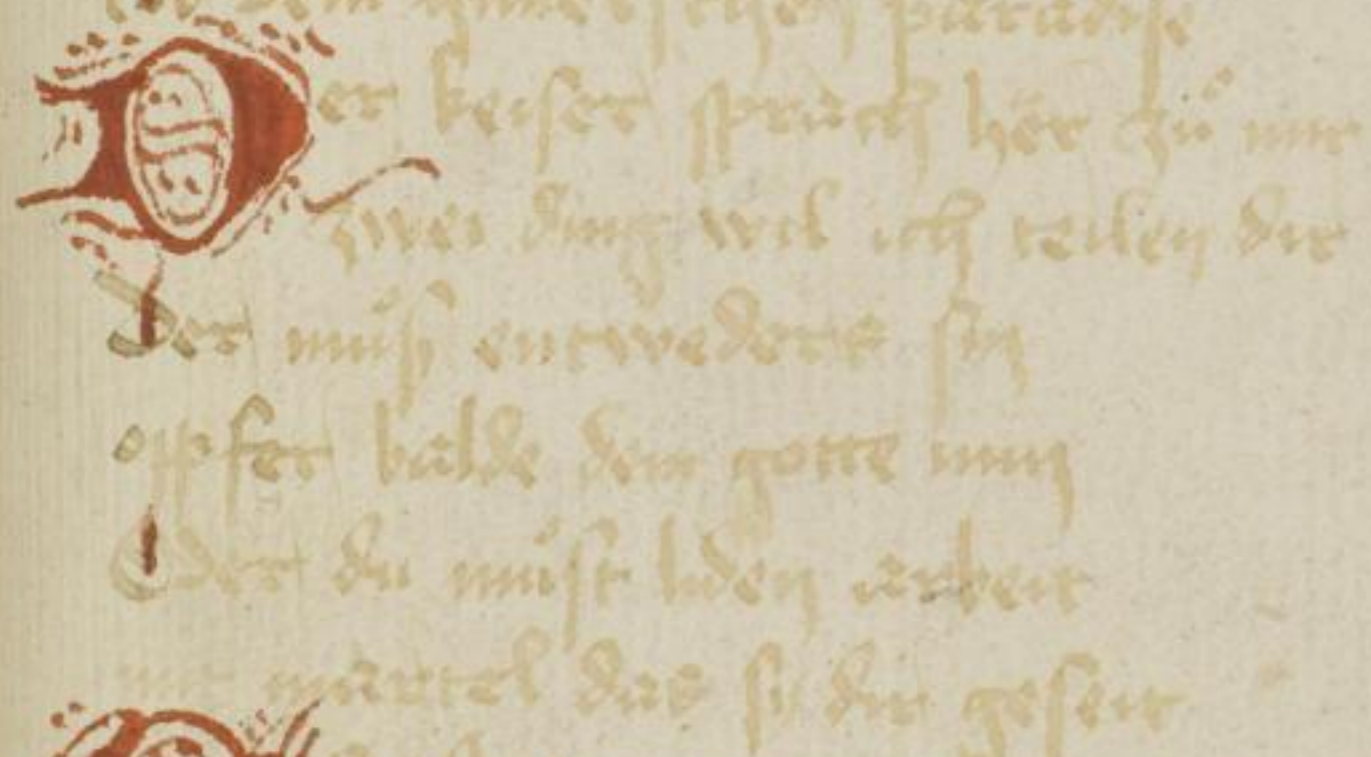 dem himelschen paradise
Der keiser sprach her zuͦ mir
zwei ding wil ich teilen dir
Der muͦß entweders sin
opfer balde dem gotte min
Oder du muͦst liden arbeit
mit martel das sy dir geseit